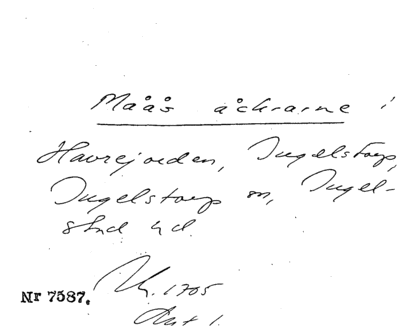 Maås åckrarne i
Havrejorden, Ingelstorp,
Ingelstorp sn, Ingel-
stad hd.
Nr 7587. 1705
Akt 1.